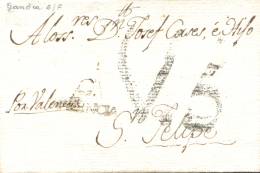 Gandia B/F
A los S.res D.n Josef Cares, é Hijo
Por Valencia
S.n Felipe